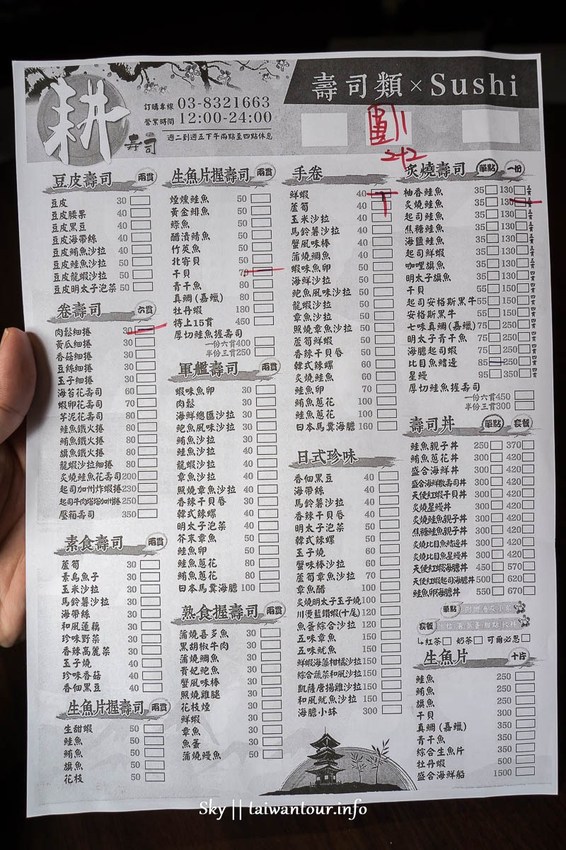 耕
壽司
訂購專線 03-8321663
營業時間 12:00-24:00
週二到週五下午兩點至四點休息
壽司類 × Sushi
豆皮壽司 兩貫
豆皮 30
豆皮腰果 40
豆皮黑豆 40
豆皮海帶絲 40
豆皮鮪魚沙拉 50
豆皮鮭魚沙拉 50
豆皮龍蝦沙拉 50
豆皮明太子泡菜 50
卷壽司 六貫
肉鬆細捲 30
黃瓜細捲 30
香菇細捲 30
豆絲細捲 30
玉子細捲 30
海苔花壽司 60
蝦卵花壽司 80
芋泥花壽司 80
鮭魚鐵火捲 80
鮪魚鐵火捲 80
旗魚鐵火捲 80
龍蝦沙拉細捲 80
炙燒鮭魚花壽司 200
起司加州炸蝦捲 230
壓箱壽司 350
素食壽司 兩貫
蘆筍 30
素烏魚子 30
玉米沙拉 30
馬鈴薯沙拉 30
海帶絲 30
和風蓮藕 30
珍味野菜 30
香辣高麗菜 30
玉子燒 30
珍味香菇 30
香佃黑豆 40
生魚片握壽司 兩貫
生甜蝦 50
鮭魚 50
鮪魚 50
旗魚 50
花枝 50
生魚片握壽司 兩貫
螳螂鮭魚 50
黃金緋魚 50
鰶魚 50
醋漬鯖魚 50
竹筴魚 50
北寄貝 50
干貝 70
青干魚 80
真鯛(嘉蠟) 80
牡丹蝦 180
特上15貫 450
厚切鮭魚握壽司
一份六貫400
半份三貫250
軍艦壽司 兩貫
蝦味魚卵 30
肉鬆 30
海鮮總匯沙拉 30
鮑魚風味沙拉 30
鮪魚沙拉 30
鮭魚沙拉 30
龍蝦沙拉 30
章魚沙拉 30
照燒章魚沙拉 40
香辣干貝唇 40
韓式辣螺 40
明太子泡菜 40
芥末章魚 50
鮭魚卵 50
鮭魚蔥花 80
鮪魚蔥花 80
日本馬糞海膽 100
熟食握壽司 兩貫
蒲燒喜多魚 30
黑胡椒牛肉 30
蒲燒鯛魚 30
貴妃鮑魚 30
蟹風味棒 30
照燒雞腿 30
花枝燒 30
鮮蝦 30
章魚 30
魚番 30
蒲燒鰻魚 50
手卷
鮮蝦 40
蘆筍 40
玉米沙拉 40
馬鈴薯沙拉 40
蟹風味棒 40
蒲燒鯛魚 40
蝦味魚卵 50
海鮮沙拉 50
鮑魚風味沙拉 50
龍蝦沙拉 50
章魚沙拉 50
照燒章魚沙拉 50
蘆筍鮮蝦 60
香辣干貝唇 60
韓式辣螺 60
炙燒鮭魚 60
鮭魚卵 100
鮪魚蔥花 100
鮭魚蔥花 100
日本馬糞海膽 160
日式珍味
香佃黑豆 40
海帶絲 40
馬鈴薯沙拉 40
香辣干貝唇 40
明太子泡菜 40
韓式辣螺 60
玉子燒 60
蟹味棒沙拉 60
蘆筍章魚沙拉 60
章魚醋 60
炙燒明太子玉子燒 100
川燙藍鑽蝦(十尾) 120
魚蛋綜合沙拉 120
五味章魚 150
五味魷魚 150
鮮蝦海藻柑橘沙拉 150
綜合蔬菜和風沙拉 150
凱薩唐揚雞沙拉 150
和風魷魚沙拉 150
海膽小缽 300
炙燒壽司 單點 一份
柚香鮭魚 35 130
炙燒鮭魚 35 130
起司鮭魚 35 130
焦糖鮭魚 35 130
海鹽鮭魚 35 130
起司鮮蝦 35 130
咖哩旗魚 35 130
明太子旗魚 35 130
干貝 35 130
起司安格斯黑牛 55 150
安格斯黑牛 55 150
七味真鯛(嘉蠟) 75 250
明太子青干魚 75 250
海膽起司鮮蝦 75 250
比目魚鰭邊 85 250
星鰻 95 350
厚切鮭魚握壽司
一份六貫450
半份三貫300
壽司丼 單點 套餐
鮭魚親子丼 250 370
鮪魚蔥花丼 300 420
盛合海鮮丼 300 420
盛合海鮮散壽司丼 300 420
天使紅蝦干貝丼 300 420
炙燒星鰻丼 300 420
炙燒鮭魚親子丼 300 420
焦糖鮭魚親子丼 300 420
炙燒比目魚鰭邊丼 300 420
炙燒比目魚星鰻丼 300 420
天使紅蝦花海膽丼 450 570
天使紅蝦起司海膽丼 500 620
鮭魚卵海膽丼 550 670
單點
套餐
紅茶 奶茶 可爾必思
生魚片 十片
鮭魚 200
鮪魚 200
旗魚 200
干貝 300
真鯛(嘉蠟) 300
青干魚 350
綜合生魚片 500
牡丹蝦 500
盛合海鮮船 1500
Sky || taiwantour.info